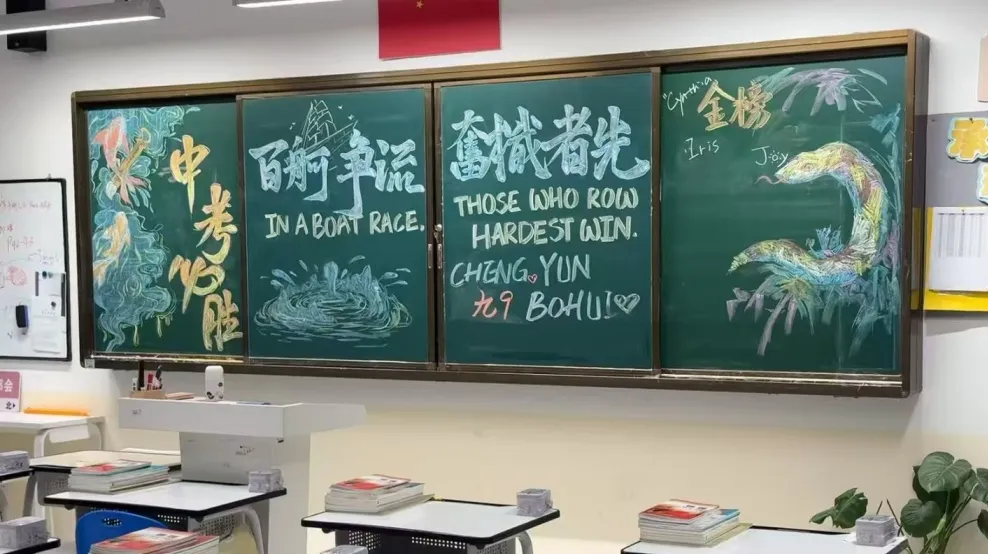 中考必胜
百舸争流
IN A BOAT RACE.
奮楫者先
THOSE WHO ROW
HARDEST WIN.
CHENG♥YUN
九9 BOHUI♡
"Cynthia
金榜
Iris